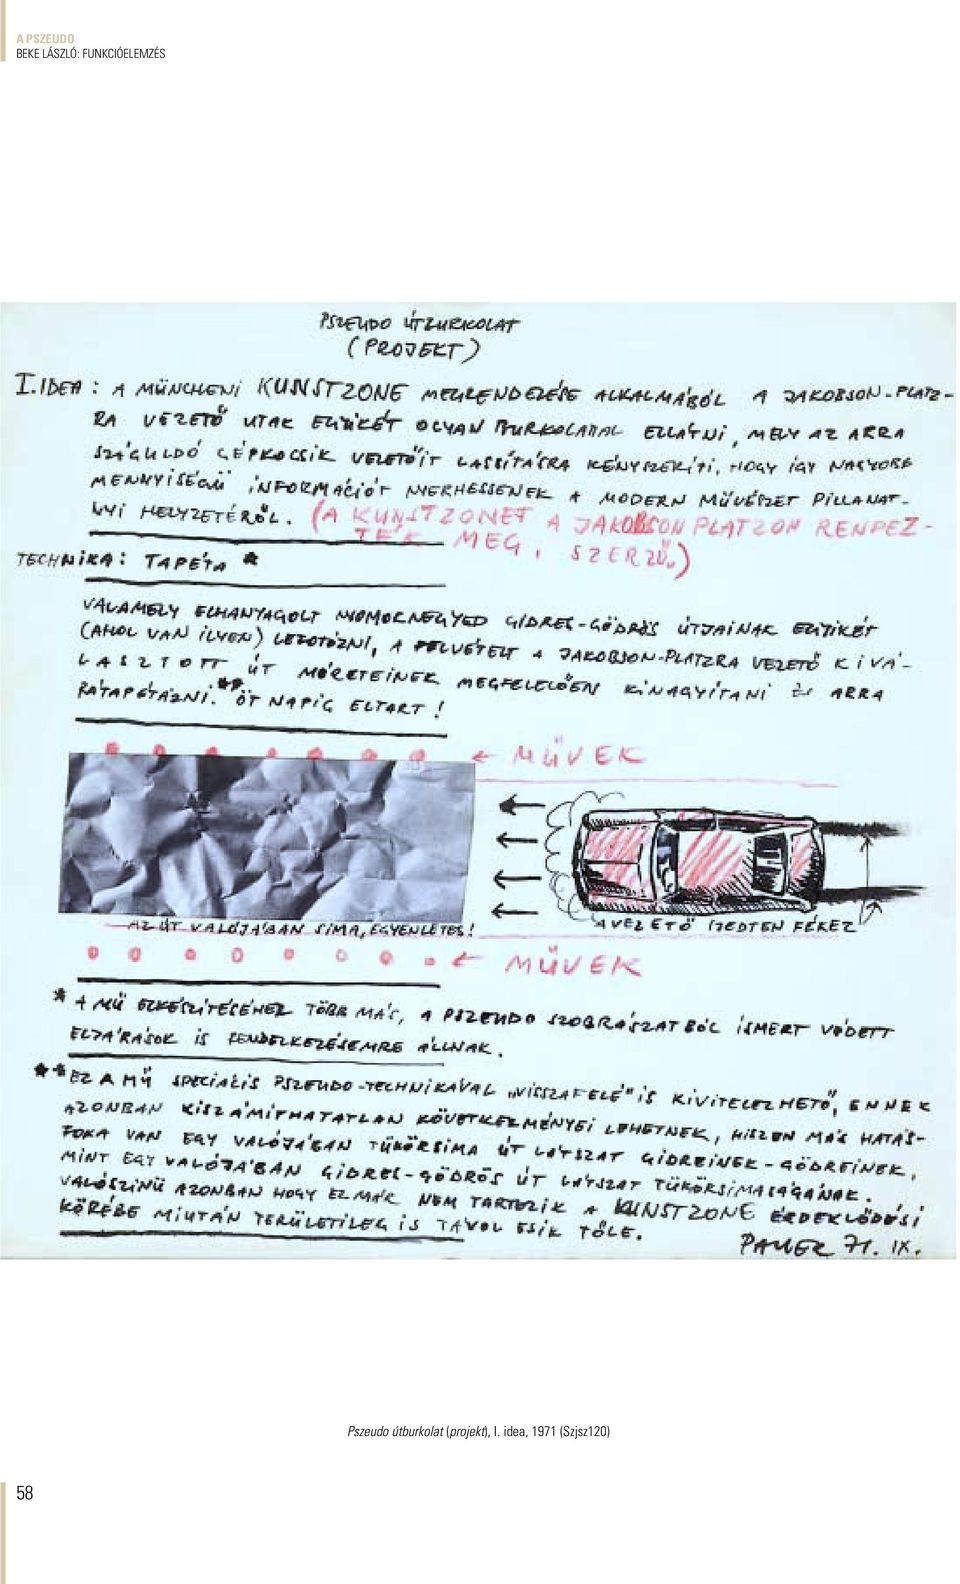 A PSZEUDO
BEKE LÁSZLÓ: FUNKCIÓELEMZÉS
PSZEUDO ÚTBURKOLAT
(PROJEKT)
I. IDEA: A MÜNCHENI KUNSTZONE MEGRENDEZÉSE ALKALMÁBÓL A JAKOBSON-PLATZ-
RA VEZETŐ UTAK EGYIKÉT OLYAN BURKOLATTAL ELLÁTNI, MELY AZ ARRA
SZÁGULDÓ GÉPKOCSIK VEZETŐIT LASSÍTÁSRA KÉNYSZERÍTI, HOGY ÍGY NAGYOBB
MENNYISÉGŰ INFORMÁCIÓT NYERHESSENEK A MODERN MŰVÉSZET PILLANAT-
NYI HELYZETÉRŐL. (A KUNSTZONET A JAKOBSON PLATZON RENDEZ-
TÉK MEG, SZERZŐ)
TECHNIKA: TAPÉTA *
VALAMELY ELHANYAGOLT NYOMORNEGYED GIDRES-GÖDRÖS ÚTJAINAK EGYIKÉT
(AHOL VAN ILYEN) LEFOTÓZNI, A FELVÉTELT A JAKOBSON-PLATZRA VEZETŐ KIVÁ-
LASZTOTT ÚT MÉRETEINEK MEGFELELŐEN KINAGYÍTANI ÉS ARRA
RÁTAPÉTÁZNI.** ÖT NAPIG ELTART!
← MŰVEK
AZ ÚT VALÓJÁBAN SIMA, EGYENLETES!
A VEZETŐ IJEDTEN FÉKEZ
← MŰVEK
* A MŰ ELKÉSZÍTÉSÉHEZ TÖBB MÁS, A PSZEUDO SZOBRÁSZATBÓL ISMERT VÉDETT
ELJÁRÁSOK IS RENDELKEZÉSEMRE ÁLLNAK.
** EZ A MŰ SPECIÁLIS PSZEUDO-TECHNIKÁVAL „VISSZAFELÉ" IS KIVITELEZHETŐ, ENNEK
AZONBAN KISZÁMÍTHATATLAN KÖVETKEZMÉNYEI LEHETNEK, HISZEN MÁS HATÁS-
FOKA VAN EGY VALÓJÁBAN TÜKÖRSIMA ÚT LÁTSZAT GIDREINEK-GÖDREINEK,
MINT EGY VALÓJÁBAN GIDRES-GÖDRÖS ÚT LÁTSZAT TÜKÖRSIMASÁGÁNAK.
VALÓSZINŰ AZONBAN HOGY EZ MÁR NEM TARTOZIK A KUNSTZONE ÉRDEKLŐDÉSI
KÖRÉBE MIUTÁN TERÜLETILEG IS TÁVOL ESIK TŐLE.
PAUER 71. IX.
Pszeudo útburkolat (projekt), I. idea, 1971 (Szjsz120)
58